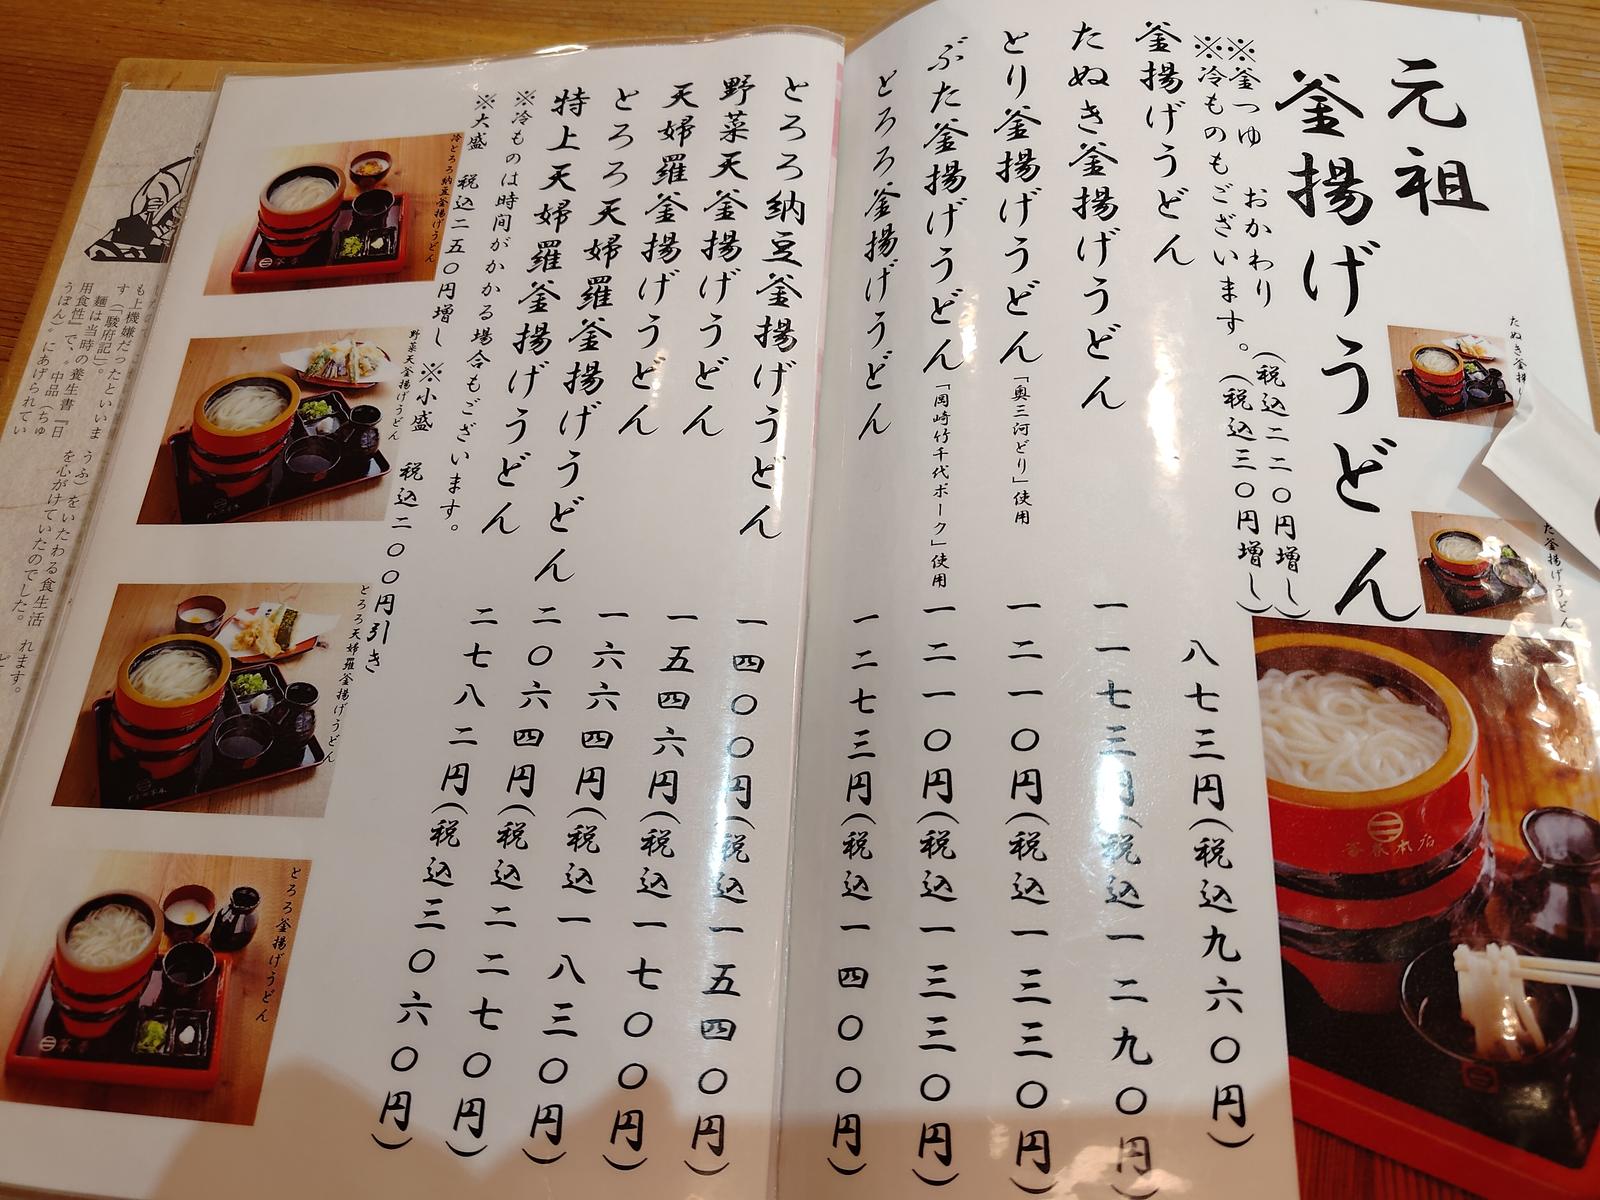 元祖
釜揚げうどん
※釜つゆ おかわり (税込二二〇円増し)
※冷ものもございます。(税込三〇円増し)
釜揚げうどん 八七三円(税込九六〇円)
たぬき釜揚げうどん 一一七三円(税込一二九〇円)
とり釜揚げうどん「奥三河どり」使用 一二一〇円(税込一三三〇円)
ぶた釜揚げうどん「岡崎竹千代ポーク」使用 一二一〇円(税込一三三〇円)
とろろ釜揚げうどん 一二七三円(税込一四〇〇円)
たぬき釜揚
た釜揚げうどん
釜春本店
とろろ納豆釜揚げうどん 一四〇〇円(税込一五四〇円)
野菜天釜揚げうどん 一五四六円(税込一七〇〇円)
天婦羅釜揚げうどん 一六六四円(税込一八三〇円)
とろろ天婦羅釜揚げうどん 二〇六四円(税込二二七〇円)
特上天婦羅釜揚げうどん 二七八二円(税込三〇六〇円)
※冷ものは時間がかかる場合もございます。
※大盛 税込二五〇円増し ※小盛 税込二〇〇円引き
冷とろろ納豆釜揚げうどん
野菜天釜揚げうどん
とろろ天婦羅釜揚げうどん
とろろ釜揚げうどん
も上機嫌だったといいま
す(「駿府記」)。
麺は当時の養生書『日
用食性』で、"中品(ちゅ
うぼん)"にあげられてい
うふ)をいたわる食生活
を心がけていたのでした。
れます。